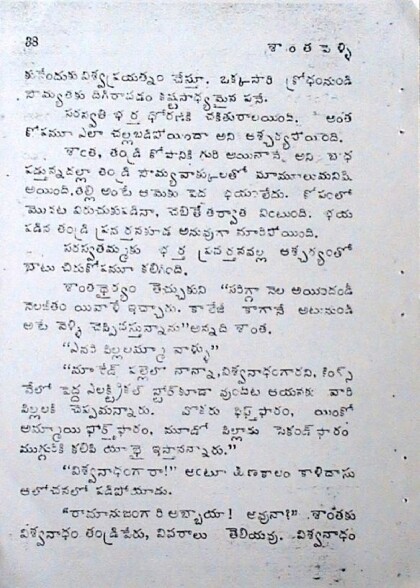 38
శాంత పెళ్ళి
కునేందుకు విశ్వప్రయత్నం చేస్తూ. ఒక్కసారి క్రోధంనుండి
సౌమ్యతకు దిగిరావడం కష్టసాధ్యమైన పనే.
సరస్వతి భర్త ధోరణికి చకితురాలయింది. అంత
కోపమూ ఎలా చల్లబడిపోయిందా అని ఆశ్చర్యపోయింది.
శాంత, తండ్రి కోపానికి గురి అయినానే అని బాధ
పడ్తున్నదల్లా తండ్రి సౌమ్యవాక్కులతో మామూలుమనిషి
అయింది. తల్లి అంటే ఆమెకు పెద్ద భయంలేదు. కోపంలో
మొదట విరుచుకుపడినా, చివరికి తర్వాత వింటుంది. భయ
పడిన తండ్రి ప్రవర్తనకూడ అనువుగా మారిపోయింది.
సరస్వతమ్మకు భర్త ప్రవర్తనవల్ల ఆశ్చర్యంతో
బాటు చిరుకోపమూ కలిగింది.
శాంత ధైర్యం తెచ్చుకుని "సరిగ్గా నెల అయిందండీ
నెలజీతం యివాళే ఇచ్చారు. కాలేజీ కాగానే అటునుండి
అటే వెళ్ళి చెప్పివస్తున్నాను" అన్నది శాంత.
"ఎవరి పిల్లలమ్మా వాళ్ళు"
పల్లెలో నాన్నా, విశ్వనాధంగారని, కింగ్స్
పెద్ద ఎలక్ట్రికల్ స్టోర్ కూడా వుందిట ఆయనకు వారి
పిల్లలకి చెప్పమన్నారు. ఒకరు ఫిఫ్త్ ఫారం, యింకో
అమ్మాయి ఫోర్త్ ఫారం, మూడో పిల్లాడు సెకండ్ ఫారం
ముగ్గురికి కలిపి యాభై ఇస్తానన్నారు."
"విశ్వనాధంగారా!" అంటూ క్షణకాలం కాళిదాసు
ఆలోచనలో పడిపోయాడు.
"రామానుజంగారి అబ్బాయా! అవునా?" శాంతకు
విశ్వనాధం తండ్రిపేరు, వివరాలు తెలియవు. విశ్వనాధం